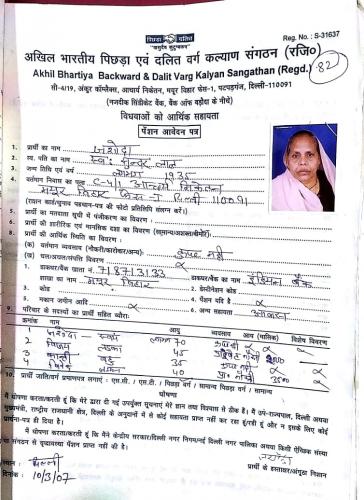 पिछड़ा दलित
"वसुधैव कुटुम्बकम्"
Reg. No. : S-31637
अखिल भारतीय पिछड़ा एवं दलित वर्ग कल्याण संगठन (रजि०)
Akhil Bhartiya Backward & Dalit Varg Kalyan Sangathan (Regd.)
82
सी-4/19, अंकुर कॉम्पलैक्स, आचार्य निकेतन, मयूर विहार फ़ेस-1, पटपड़गंज, दिल्ली-110091
(नजदीक सिंडीकेट बैंक, बैंक ऑफ बड़ौदा के नीचे)
विधवाओं को आर्थिक सहायता
पेंशन आवेदन पत्र
1. प्रार्थी का नाम
2. स्व. पति का नाम स्व: सुन्दर लाल
3. जन्म तिथि एवं वर्ष लगभग 1935
4. वर्तमान निवास का पता
मयूर विहार दिल्ली 110091
(राशन कार्ड/चुनाव पहचान-पत्र की फोटो प्रतिलिपि संलग्न करें।)
5. प्रार्थी का मतदाता सूची में पंजीकरण का विवरण :
6. प्रार्थी की शारीरिक एवं मानसिक दशा का विवरण
8. प्रार्थी की आर्थिक स्थिति का विवरण :
(क) वर्तमान व्यवसाय (नौकरी/कारोबार/अन्य) : कुछ नहीं
(ख) चल/अचल/संपत्ति विवरण :
1. डाकघर/बैंक खाता नं. 718713133 डाकघर/बैंक का नाम : इंडियन बैंक
शाखा का नाम : मयूर विहार
3. कोड 2. डेस्टीनेशन कोड
5. मकान जमीन आदि 4. पेंशन यदि है
6. अन्य सहायता
9. परिवार के सदस्यों का प्रार्थी सहित ब्यौरा:
क्रमांक नाम आयु व्यवसाय आय (मासिक) विशेष विवरण
1 70
2 लड़का 45
3 बहु 35
4 40 3500
10. प्रार्थी जाति/वर्ग प्रमाणपत्र लगाएं : एस.सी. / एस.टी. / पिछड़ा वर्ग / सामान्य पिछड़ा वर्ग / सामान्य
घोषणा
मैं घोषणा करता/करती हूं कि मेरे द्वारा दी गई उपर्युक्त सूचनाएं मेरे ज्ञान तथा विश्वास से ठीक हैं। मैं उप-राज्यपाल, दिल्ली अथवा
मुख्यमंत्री, राष्ट्रीय राजधानी क्षेत्र, दिल्ली के अनुदानों में से कोई सहायता प्राप्त नहीं कर रहा हूं/रही हूं और न इसके लिए कोई
प्रार्थना-पत्र ही दिया है।
मैं घोषणा करता/करती हूं कि मैंने केन्द्रीय सरकार/दिल्ली नगर निगम/नई दिल्ली नगर पालिका अथवा किसी ऐच्छिक संस्था
या संगठन से वृद्धावस्था पेंशन प्राप्त नहीं की है।
स्थान : दिल्ली
दिनांक : 10/3/07
प्रार्थी के हस्ताक्षर/अंगूठा निशान